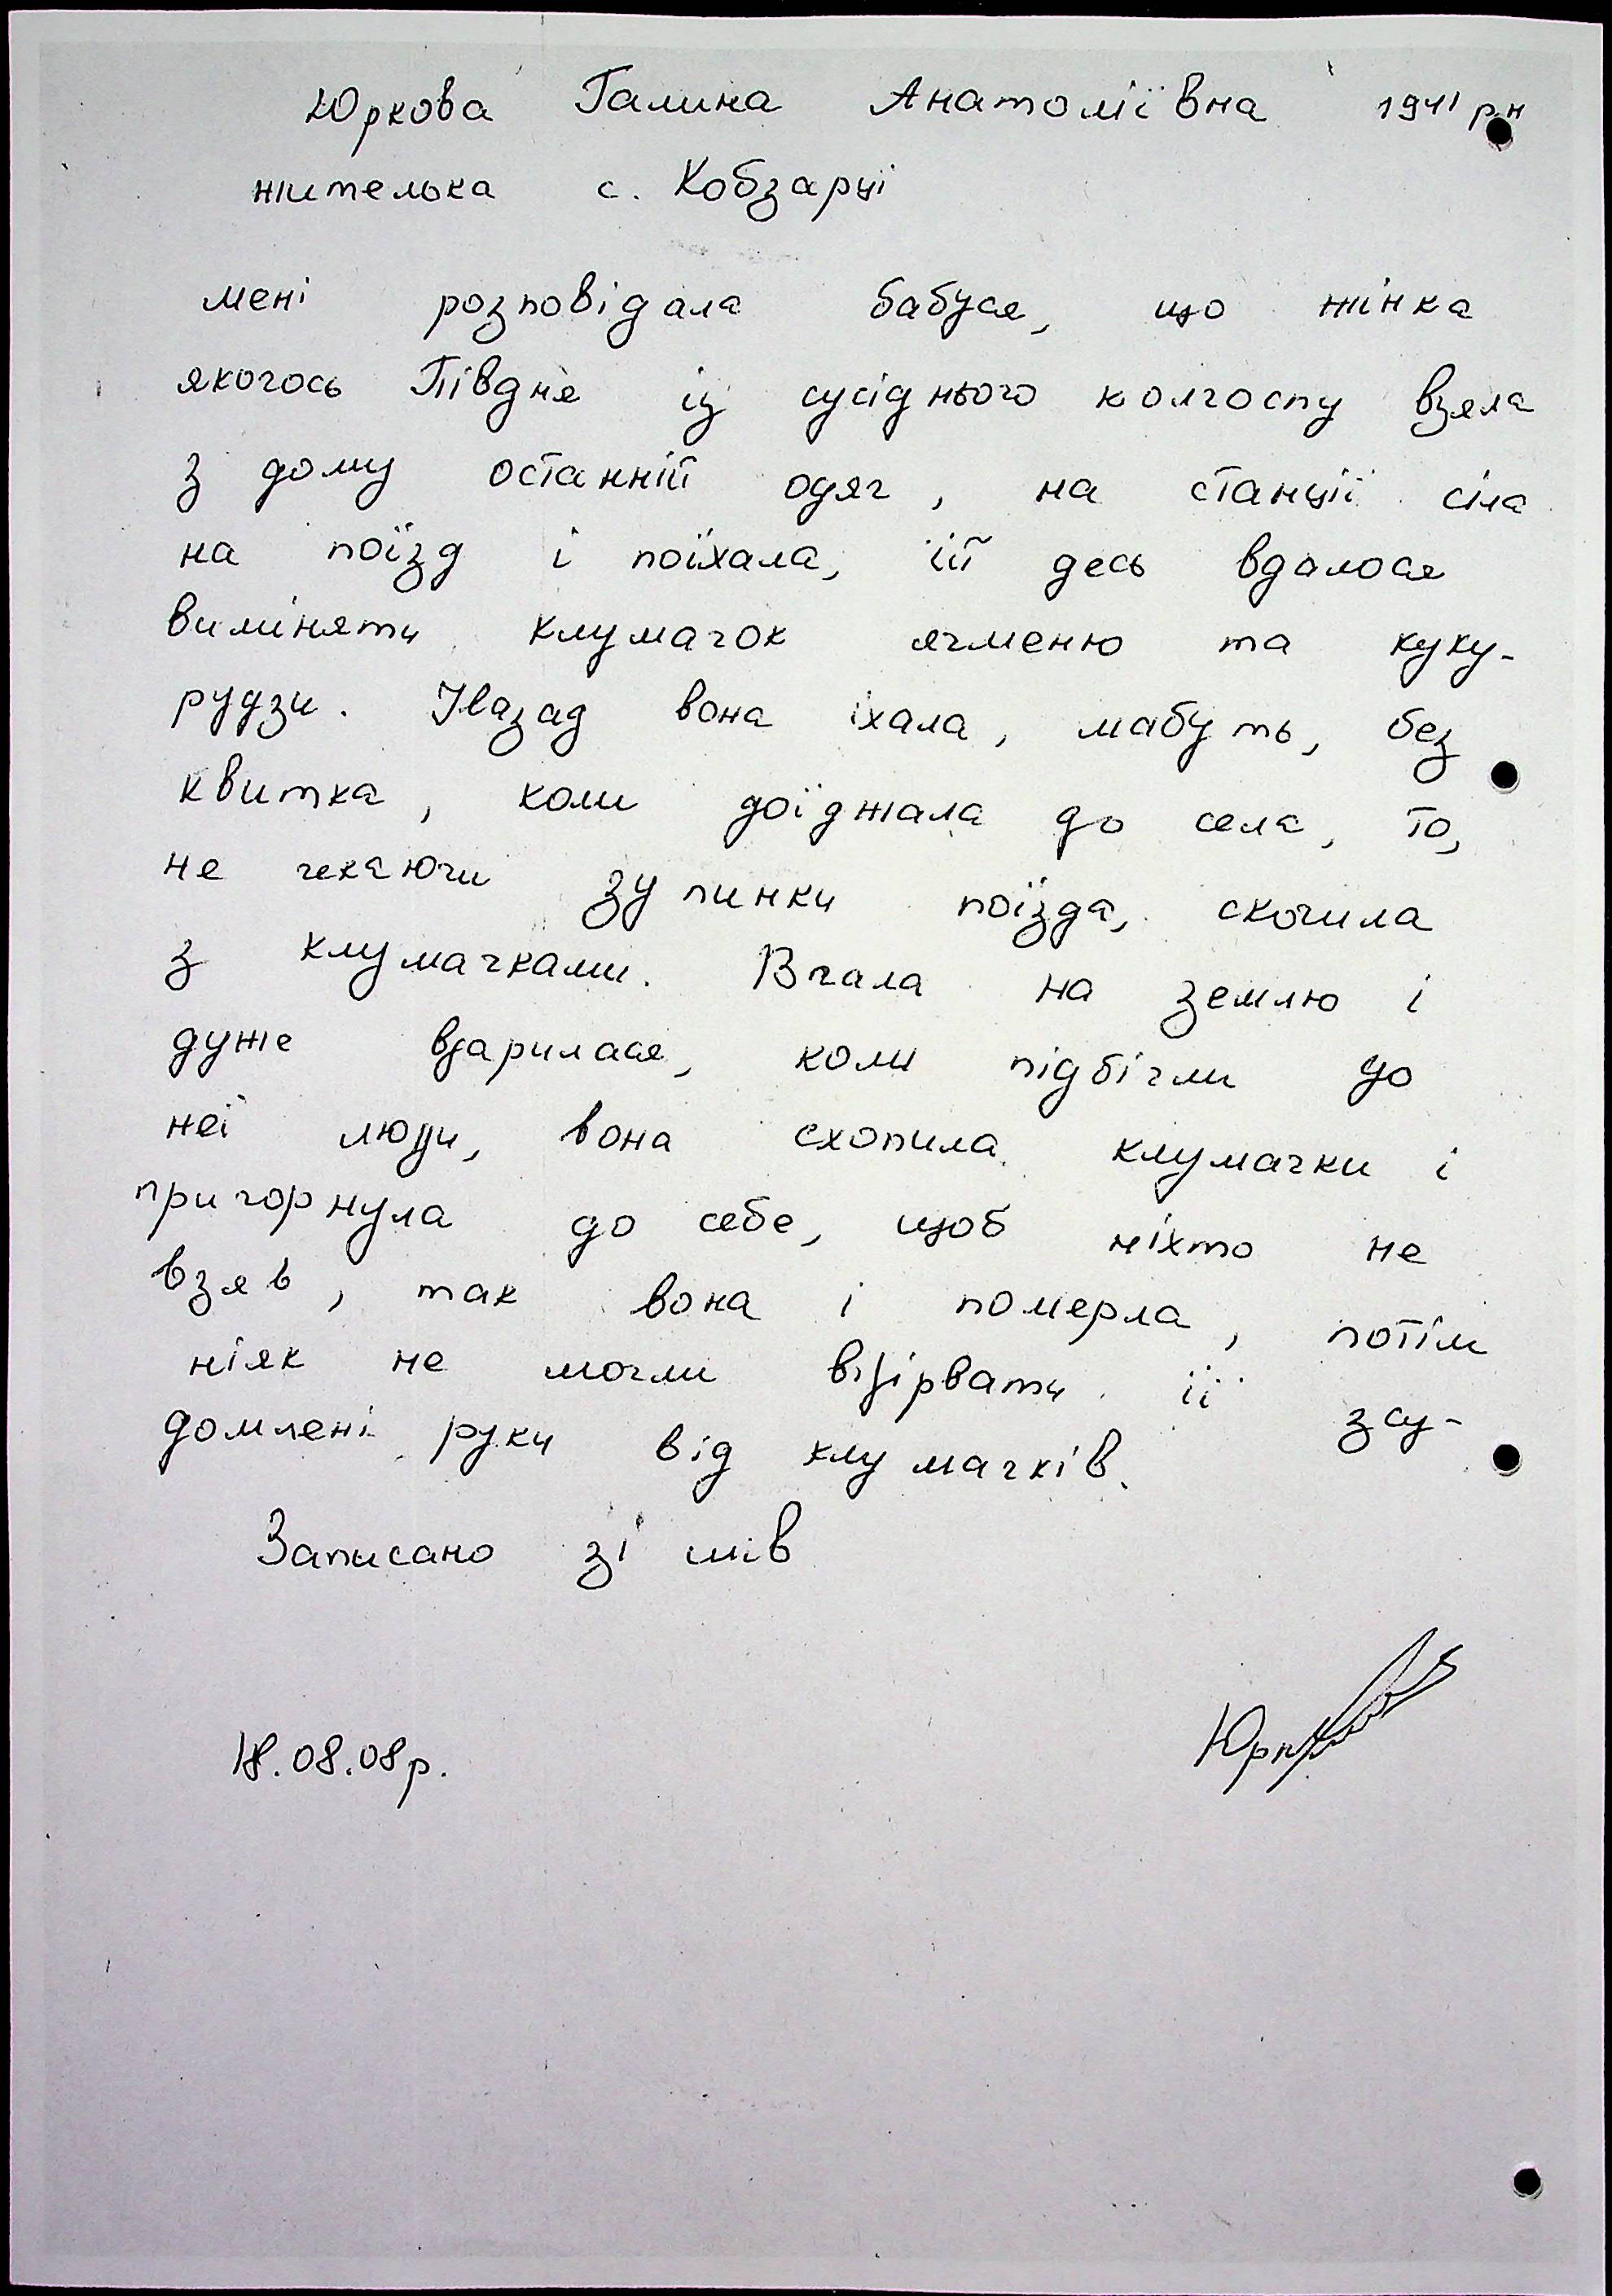 Юркова Галина Анатоліївна 1941 р.н
жителька с. Кобзарці
мені розповідала бабуся, що жінка
якогось Півдня із сусіднього колгоспу взяла
з дому останній одяг, на станції сіла
на поїзд і поїхала, їй десь вдалося
виміняти клумачок ячменю та куку-
рудзи. Назад вона їхала, мабуть, без
квитка, коли доїджала до села, то,
не чекаючи зупинки поїзда, скочила
з клумачками. Впала на землю і
дуже вдарилася, коли підбігли до
неї люди, вона схопила клумачки і
пригорнула до себе, щоб ніхто не
взяв, так вона і померла, потім
ніяк не могли відірвати її зсу-
домлені руки від клумачків.
Записано зі слів
18.08.08р.